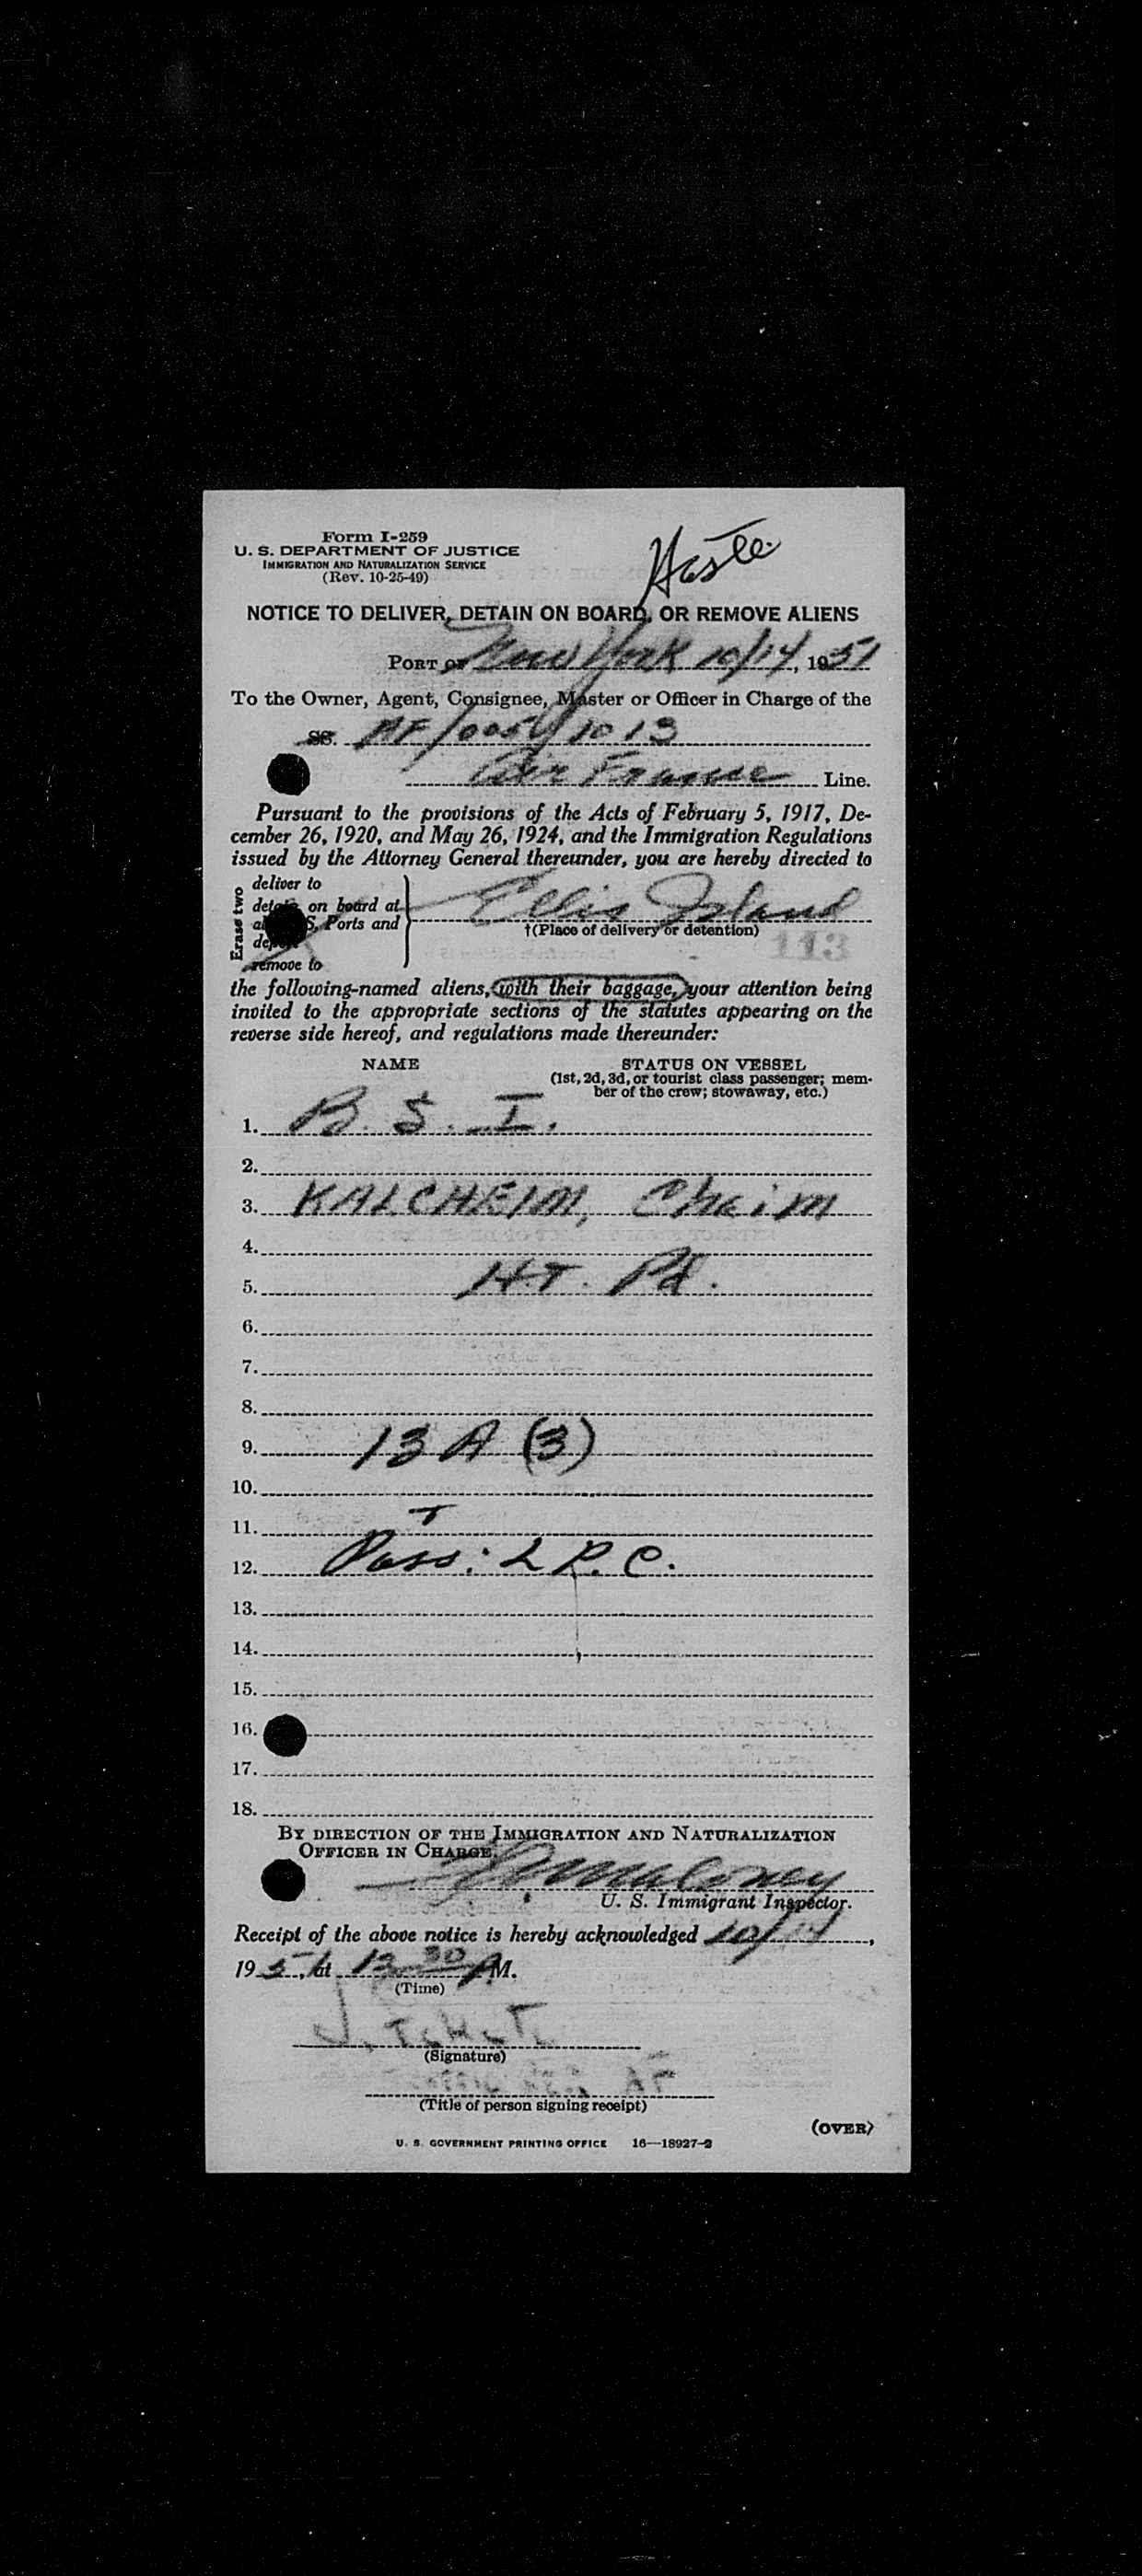 Form I-259
U. S. DEPARTMENT OF JUSTICE
IMMIGRATION AND NATURALIZATION SERVICE
(Rev. 10-25-49)
NOTICE TO DELIVER, DETAIN ON BOARD, OR REMOVE ALIENS
PORT OF New York 10/14, 1951
To the Owner, Agent, Consignee, Master or Officer in Charge of the
SS. AF/005 1013
Air France Line.
Pursuant to the provisions of the Acts of February 5, 1917, De-
cember 26, 1920, and May 26, 1924, and the Immigration Regulations
issued by the Attorney General thereunder, you are hereby directed to
Erase two
deliver to
detain on board at
S. Ports and
remove to
Ellis Island
†(Place of delivery or detention)
113
the following-named aliens, with their baggage, your attention being
invited to the appropriate sections of the statutes appearing on the
reverse side hereof, and regulations made thereunder:
NAME STATUS ON VESSEL
(1st, 2d, 3d, or tourist class passenger; mem-
ber of the crew; stowaway, etc.)
1. B. S. I.
2.
3. KALCHEIM, Chaim
4.
5. H.T. Pd.
6.
7.
8.
9. 13 A (3)
10.
11.
12. Poss: L P. C.
13.
14.
15.
16.
17.
18.
BY DIRECTION OF THE IMMIGRATION AND NATURALIZATION
OFFICER IN CHARGE.
Maloney
U. S. Immigrant Inspector.
Receipt of the above notice is hereby acknowledged 10/14,
1951, at 12 30 AM.
(Time)
(Signature)
(Title of person signing receipt)
(OVER)
U. S. GOVERNMENT PRINTING OFFICE 16—18927-2